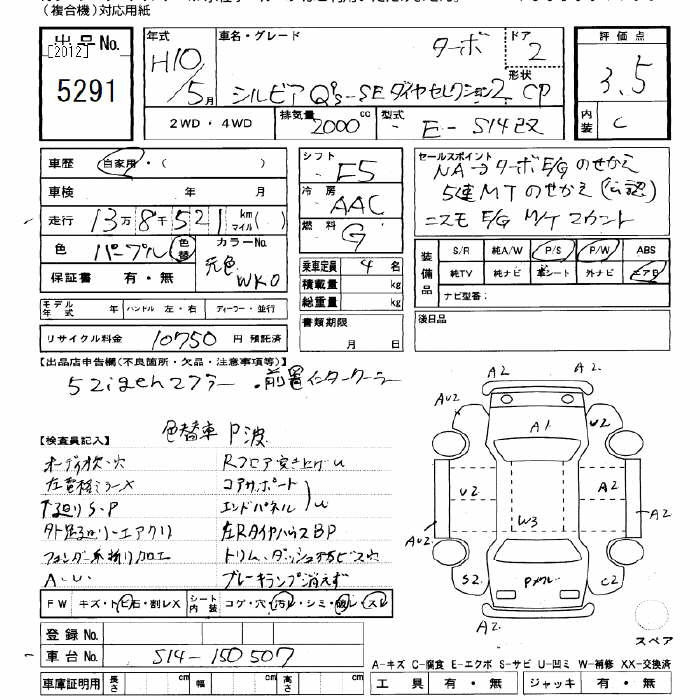 (複合機)対応用紙
出品No.
[2012]
5291
年式 H10/5月
車名・グレード
ターボ
シルビア Q's-SE ダイヤセレクション2
ドア 2
形状 CP
2WD・4WD
排気量 2000 cc
型式 E-S14改
評価点
3.5
内装 C
車歴 自家用・( )
車検 年 月
走行 13万8千521 km マイル( )
色 パープル 色替
カラーNo. 元色 WK0
保証書 有・無
モデル年式 年 ハンドル 左・右 ディーラー・並行
リサイクル料金 10750 円 預託済
シフト F5
冷房 AAC
燃料 G
乗車定員 4 名
積載量 kg
総重量 kg
書類期限
月 日
セールスポイント
NA→ターボE/Gのせかえ
5速MTのせかえ(公認)
ニスモ E/G M/T マウント
装備品
S/R 純A/W P/S P/W ABS
純TV 純ナビ 革シート 外ナビ エアB
ナビ型番:
後日品
【出品店申告欄(不良箇所・欠品・注意事項等)】
5zigenマフラー ・前置インタークーラー
【検査員記入】
色替車 P波
オーディオ欠・穴
Rフロア突き上げU
コアサポート
エンドパネル U
下廻りS・P
左RタイヤハウスBP
フェンダー爪折り加工
A・U・
ブレーキランプ消えず
FW キズ・トビ石・割レX
シート内装 コゲ・穴・汚レ・シミ・破レ・スレ
登録No.
車台No. S14-150507
車庫証明用 長さ cm 幅 cm 高さ cm
A2 A2
AU2 A1 U2
U2 A2
AU2 W3 A2
S2 Pメクレ C2
A2
スペア
A-キズ C-腐食 E-エクボ S-サビ U-凹ミ W-補修 XX-交換済
工具 有・無 ジャッキ 有・無